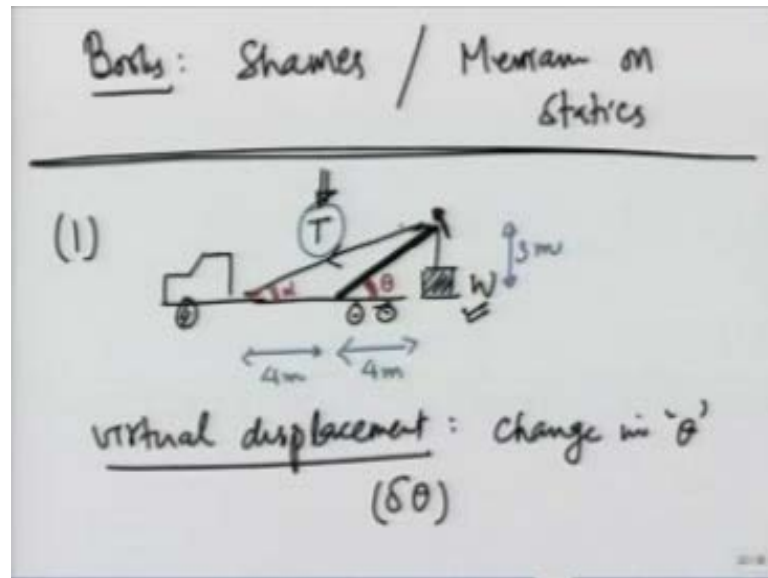 Books: Shames / Meriam on
Statics
(1)
T
α
θ
W
3m
4m
4m
virtual displacement: change in 'θ'
(δθ)